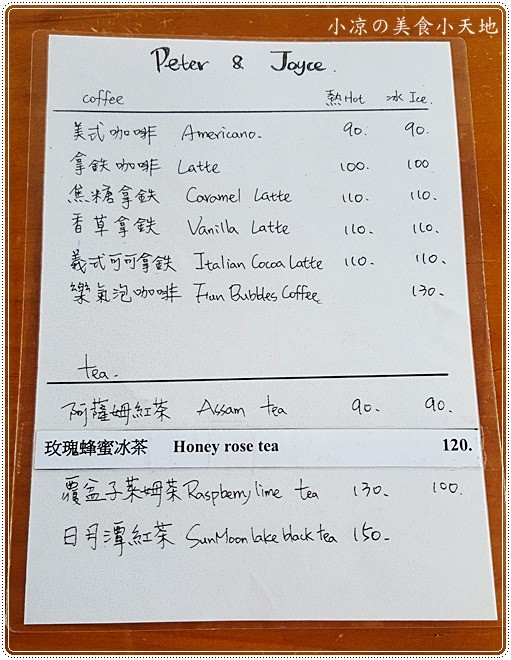 小凉の美食小天地
Peter & Joyce.
coffee 熱Hot 冰 Ice.
美式咖啡 Americano. 90. 90.
拿鉄咖啡 Latte 100. 100.
焦糖拿鉄 Caramel Latte 110. 110.
香草拿鉄 Vanilla Latte 110. 110.
義式可可拿鉄 Italian Cocoa Latte 110. 110.
樂氣泡咖啡 Fun Bubbles Coffee 130.
tea.
阿薩姆紅茶 Assam tea 90. 90.
玫瑰蜂蜜冰茶 Honey rose tea 120.
覆盆子萊姆茶 Raspberry lime tea 130. 100.
日月潭紅茶 SunMoon lake black tea 150.